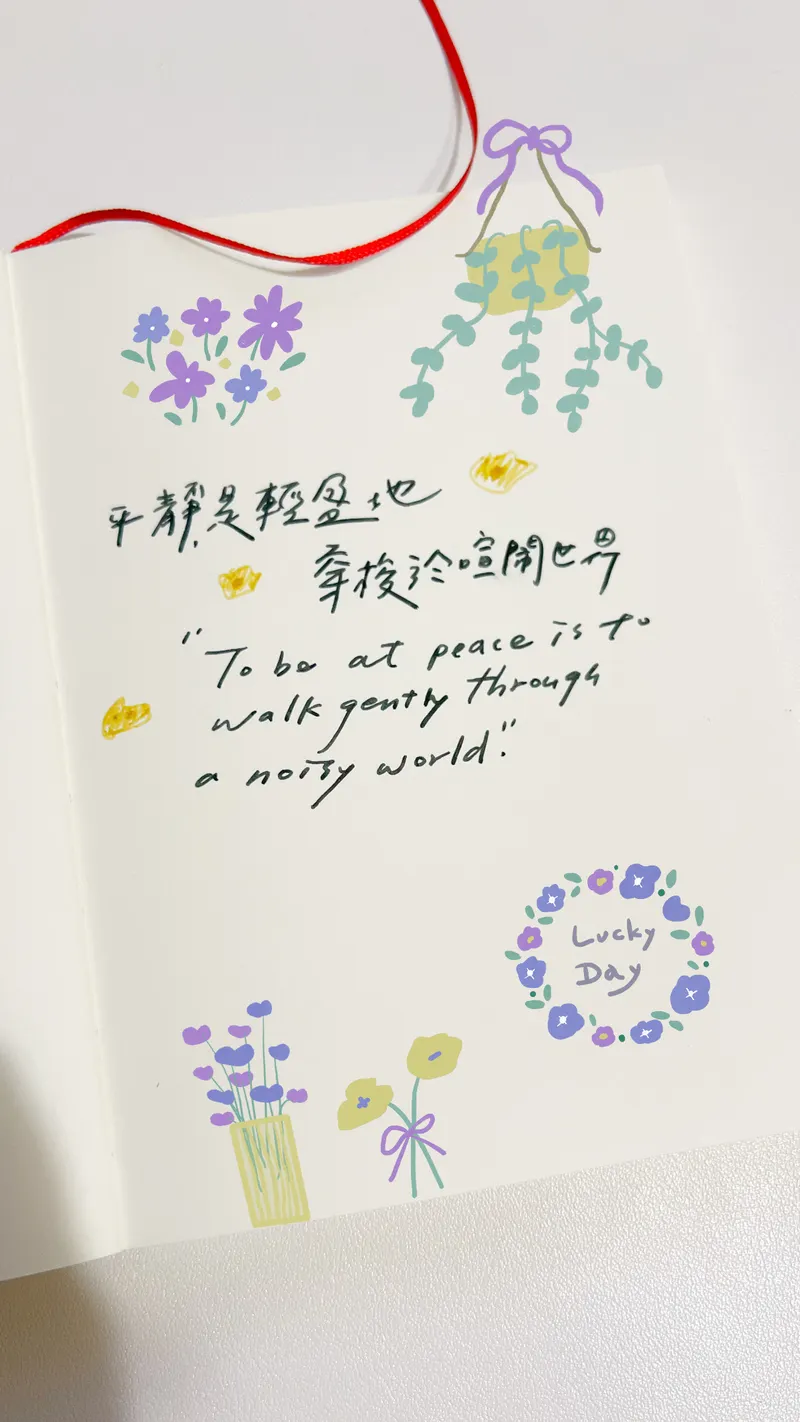 平靜是輕盈地
穿梭於喧鬧世界
"To be at peace is to
walk gently through
a noisy world."
Lucky
Day